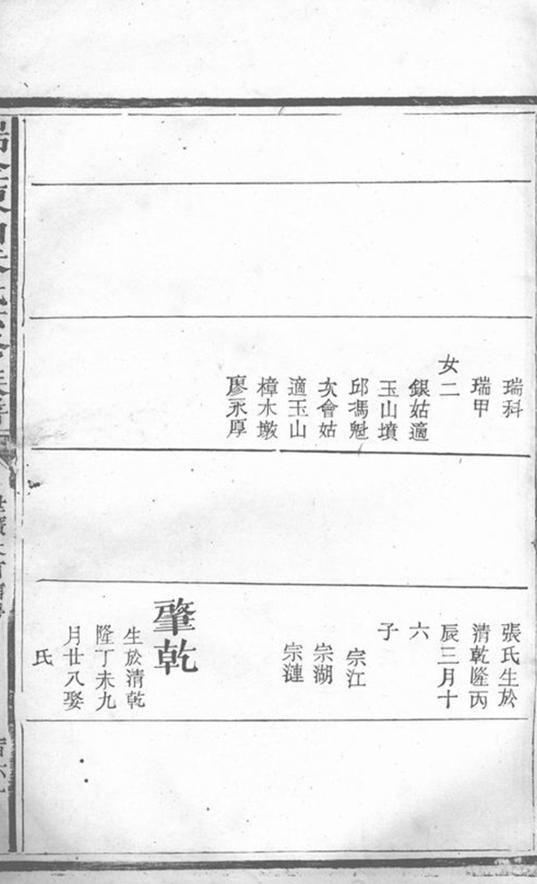 瑞科
瑞甲
女二
銀姑適
玉山墳
邱馮魁
次會姑
適玉山
樟木墩
廖永厚
張氏生於
清乾隆丙
辰三月十
六
子
宗江
宗湖
宗漣
肇乾
生於清乾
隆丁未九
月廿八娶
氏